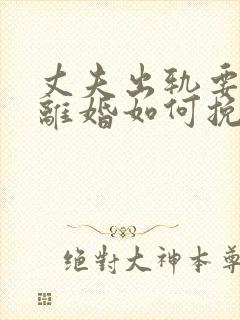 丈夫出軌要
離婚如何挽
絕對大神本尊